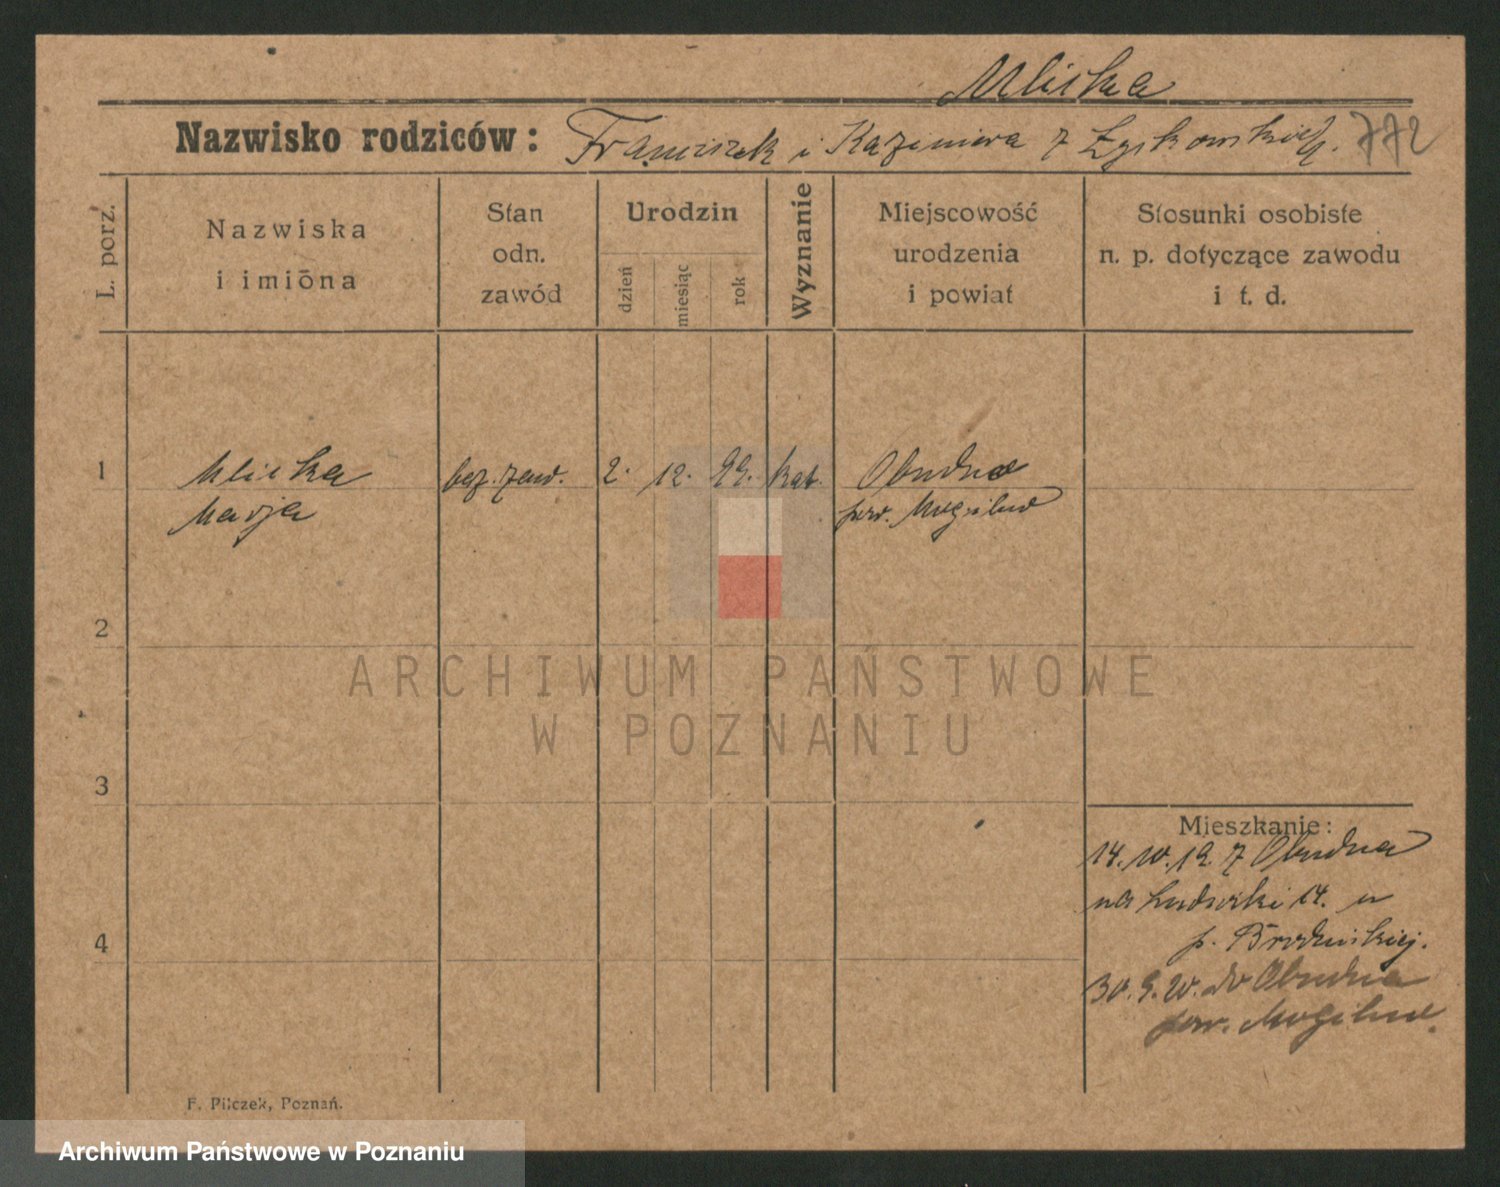 Mliska
Nazwisko rodziców: Franciszek i Kazimiera z Łyskowskich. 772
L. porz.
Nazwiska
i imiona
Stan
odn.
zawód
Urodzin
dzień
miesiąc
rok
Wyznanie
Miejscowość
urodzenia
i powiat
Stosunki osobiste
n. p. dotyczące zawodu
i t. d.
1 bez. zaw. 2. 12. 99. kat. Obudno
Marja pow. Mogilno
2
ARCHIWUM PAŃSTWOWE
W POZNANIU
3
Mieszkanie:
14. 10. 19. z Obudna
na 14. u
4
p.
30. 9. 20. do Obudna
pow. Mogilno.
F. Pilczek, Poznań.
Archiwum Państwowe w Poznaniu